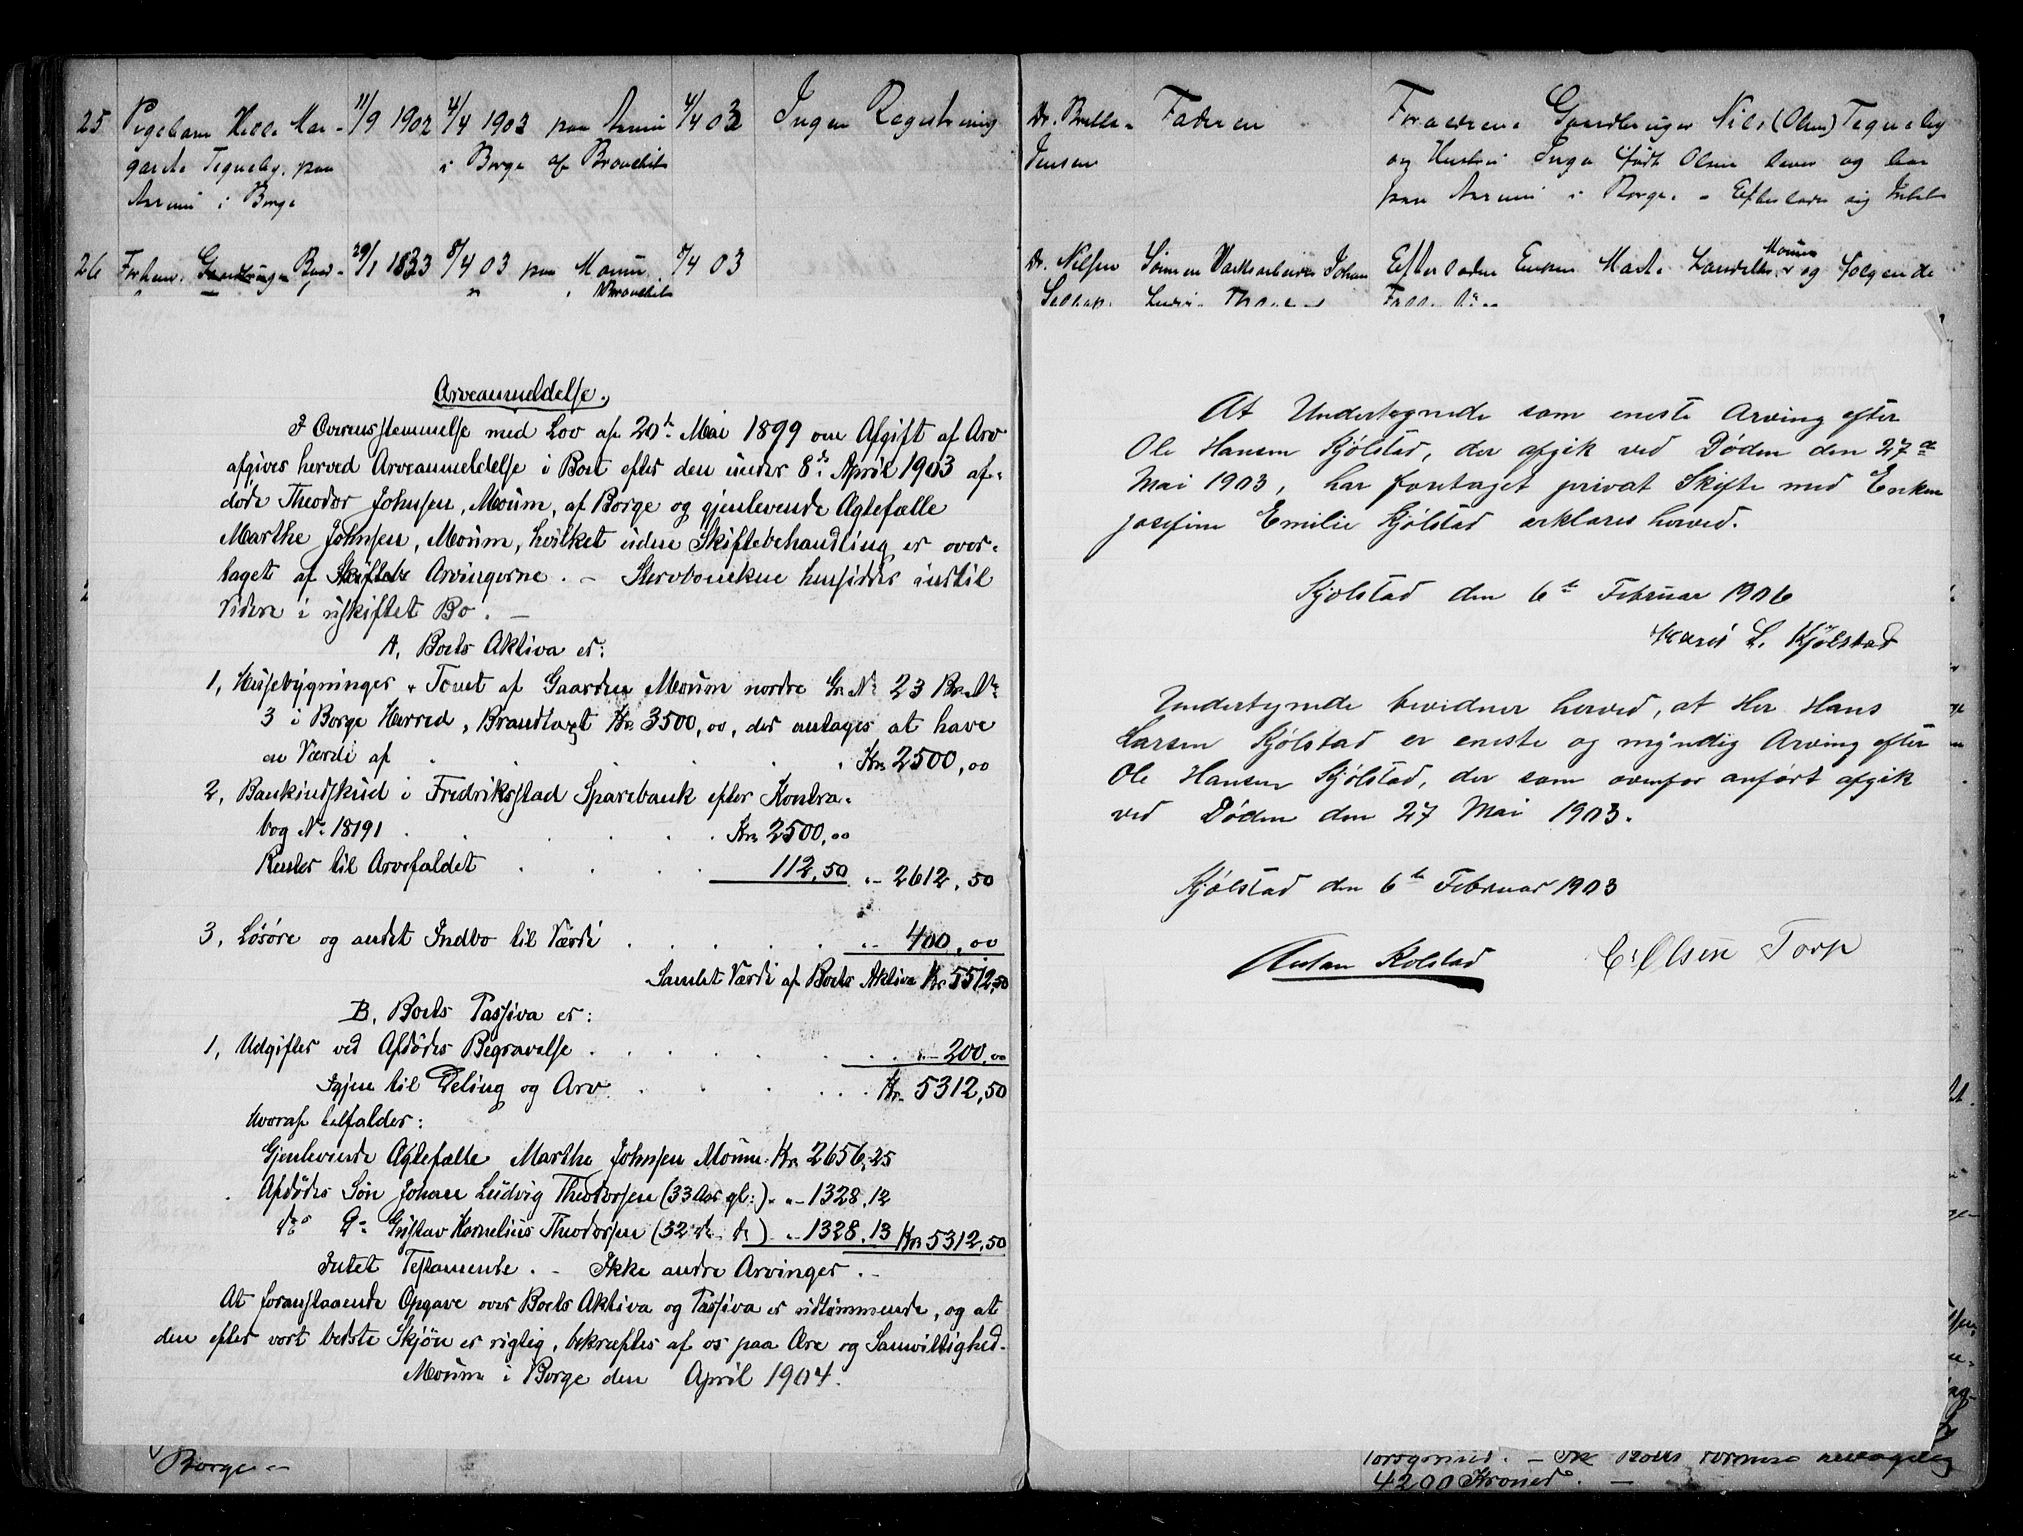 25 Pigebarn Helle Mar- 11/9 1902 4/4 1903 paa Årum 4/4 03 Ingen Registrering
garete Tegneby, paa i Borge af Bronchit
i Borge
26 Forhen. 29/1 1833 8/4 03 paa Moum 8/4 03
Bronchit
Arveanmeldelse.
I Overensstemmelse med Lov af 20de Mai 1899 om Afgift af Arv
afgives herved Arveanmeldelse i Boet efter den under 8de April 1903 af-
døde Theodor Johnsen, Moum, af Borge og gjenlevende Ægtefælle
Marthe Johnsen, Moum, hvilket uden Skiftebehandling er over-
taget af Arvingerne. – Stervboenken hensidder indtil
videre i uskiftet Bo. –
A. Boets Aktiva er:
1, Husebygninger + Tomt af Gaarden Moum nordre Gr. No 23 Br. No
3 i Borge Herred, Brandtaxt Kr. 3500,00, der antages at have
en Værdi af . . . . . Kr. 2500,00
2, Bankindskud i Fredriksstad Sparebank efter Kontra-
bog No 18191 . . . . . Kr. 2500,00
Renter til Arvefaldet . . . . 112,50 „- 2612,50
3, Løsøre og andet Indbo til Værdi . . . . . „- 400,00
Samlet Værdi af Boets Aktiva Kr. 5512,50
B. Boets Passiva er:
1, Udgifter ved Afdødes Begravelse . . . . . „- 200,00
Igjen til Deling og Arv . . . . . Kr. 5312,50
Hvoraf tilfalder:
Gjenlevende Ægtefælle Marthe Johnsen Moum. Kr. 2656,25
Afdødes Søn Johan Ludvig Theodorsen (33 Aar gl:) „- 1328,12
do Do Gustav Kornelius Theodorsen (32 do do) „- 1328,13 Kr. 5312,50
Intet Testamente. – Ikke andre Arvinger. –
At foranstaaende Opgave over Boets Aktiva og Passiva er udtømmende, og at
den efter vort bedste Skjøn er rigtig, bekræftes af os paa Ære og Samvittighed.
Moum i Borge den April 1904.
Borge
Dr. Faderen Forældrene Gaardbruger Nils (Olsen) Tegneby
Jensen og Hustru Inga født Olsen lever og bor
paa i Borge. – Efterlader sig Intet
Dr. Nilsen Sønnen Johan Efterlader Enken Moum og følgende
At Undertegnede som eneste Arving efter
Ole Hansen Kjølstad, der afgik ved Døden den 27de
Mai 1903, har foretaget privat Skifte med Enken
Josefine Emilie Kjølstad erklæres herved.
Kjølstad den 6te Februar 1906
Hans L. Kjölstad
Undertegnede bevidner herved, at Her Hans
Larsen Kjølstad er eneste og myndig Arving efter
Ole Hansen Kjølstad, der som ovenfor anført afgik
ved Døden den 27 Mai 1903.
Kjølstad den 6te Februar 1903
Anton Kolstad C. Olsen Torp
4200 Kroner. –